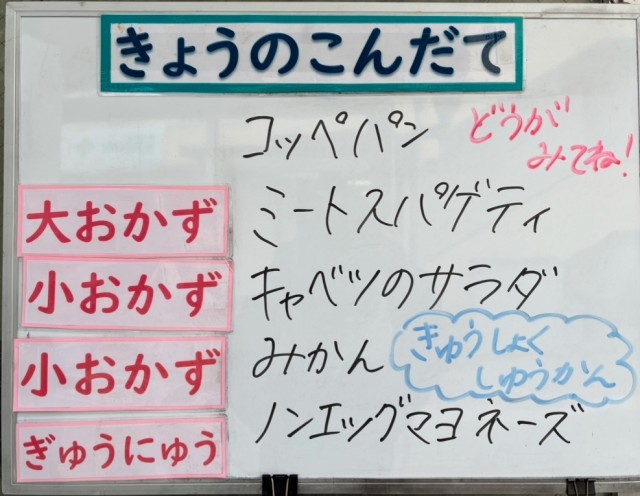 きょうのこんだて
コッペパン
どうが
みてね!
大おかず
ミートスパゲティ
小おかず
キャベツのサラダ
小おかず
みかん
きゅうしょく
しゅうかん
ぎゅうにゅう
ノンエッグマヨネーズ